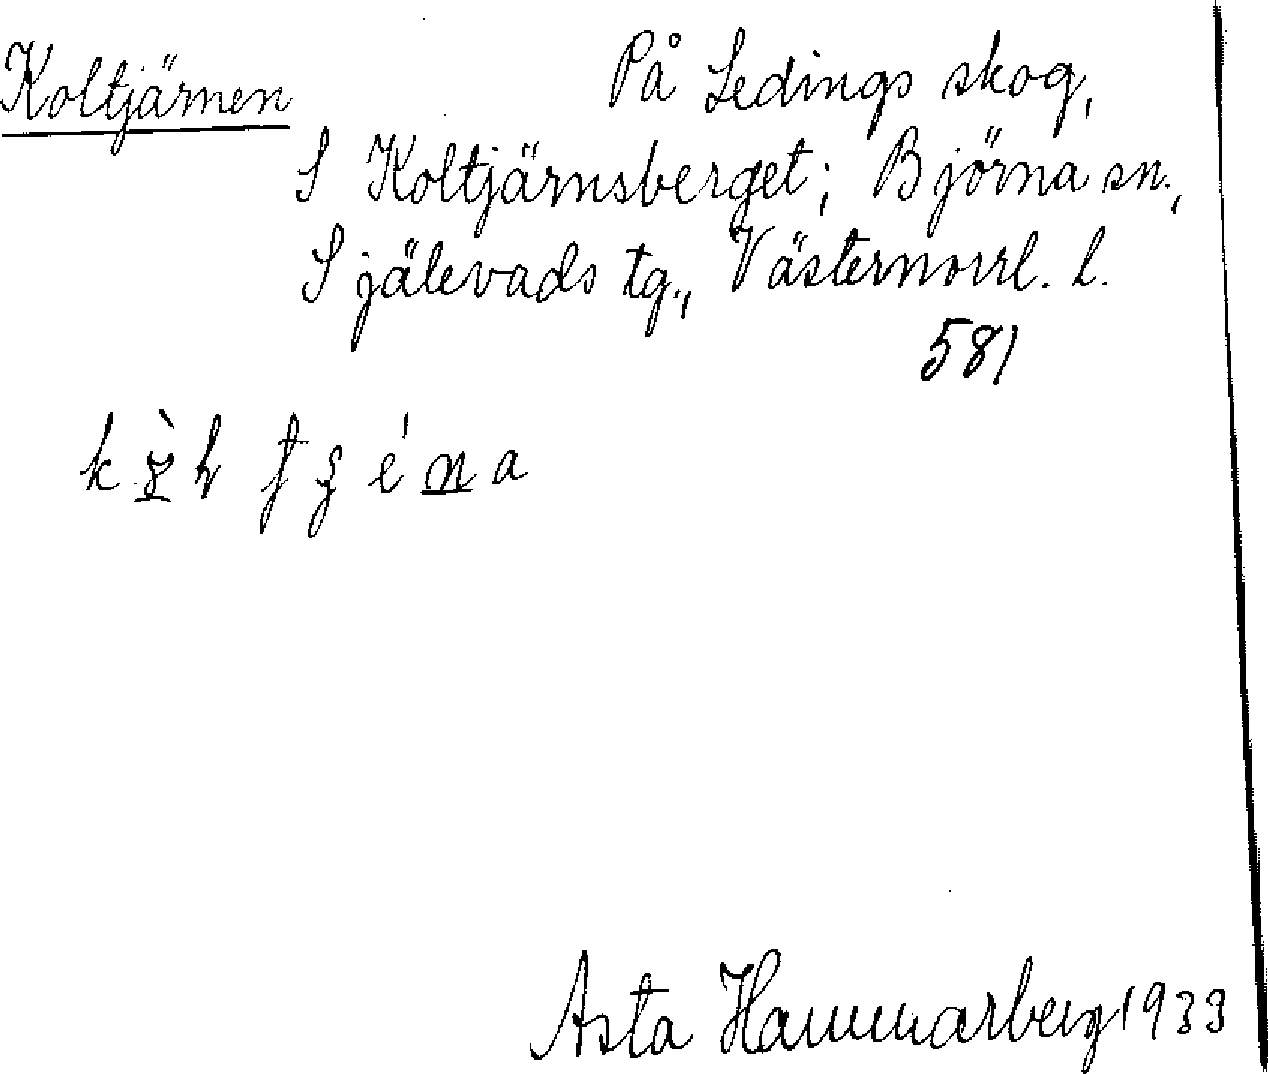 Koltjärnen
På Ledings skog,
S Koltjärnsberget; Björna sn.,
Själevads tg., Västernorrl. l.
581
Asta Hammarberg 1933